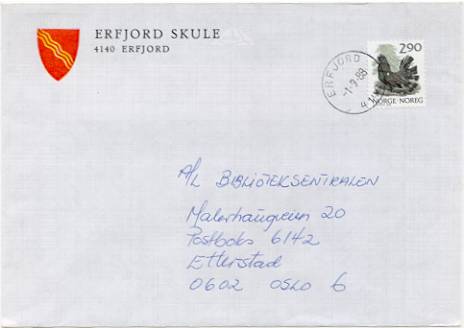 ERFJORD SKULE
4140 ERFJORD
ERFJORD
-1-9-88
290
NORGE·NOREG
A/L BIBLIOTEKSENTRALEN
Malerhaugveien 20
Postboks 6142
Etterstad
0602 OSLO 6